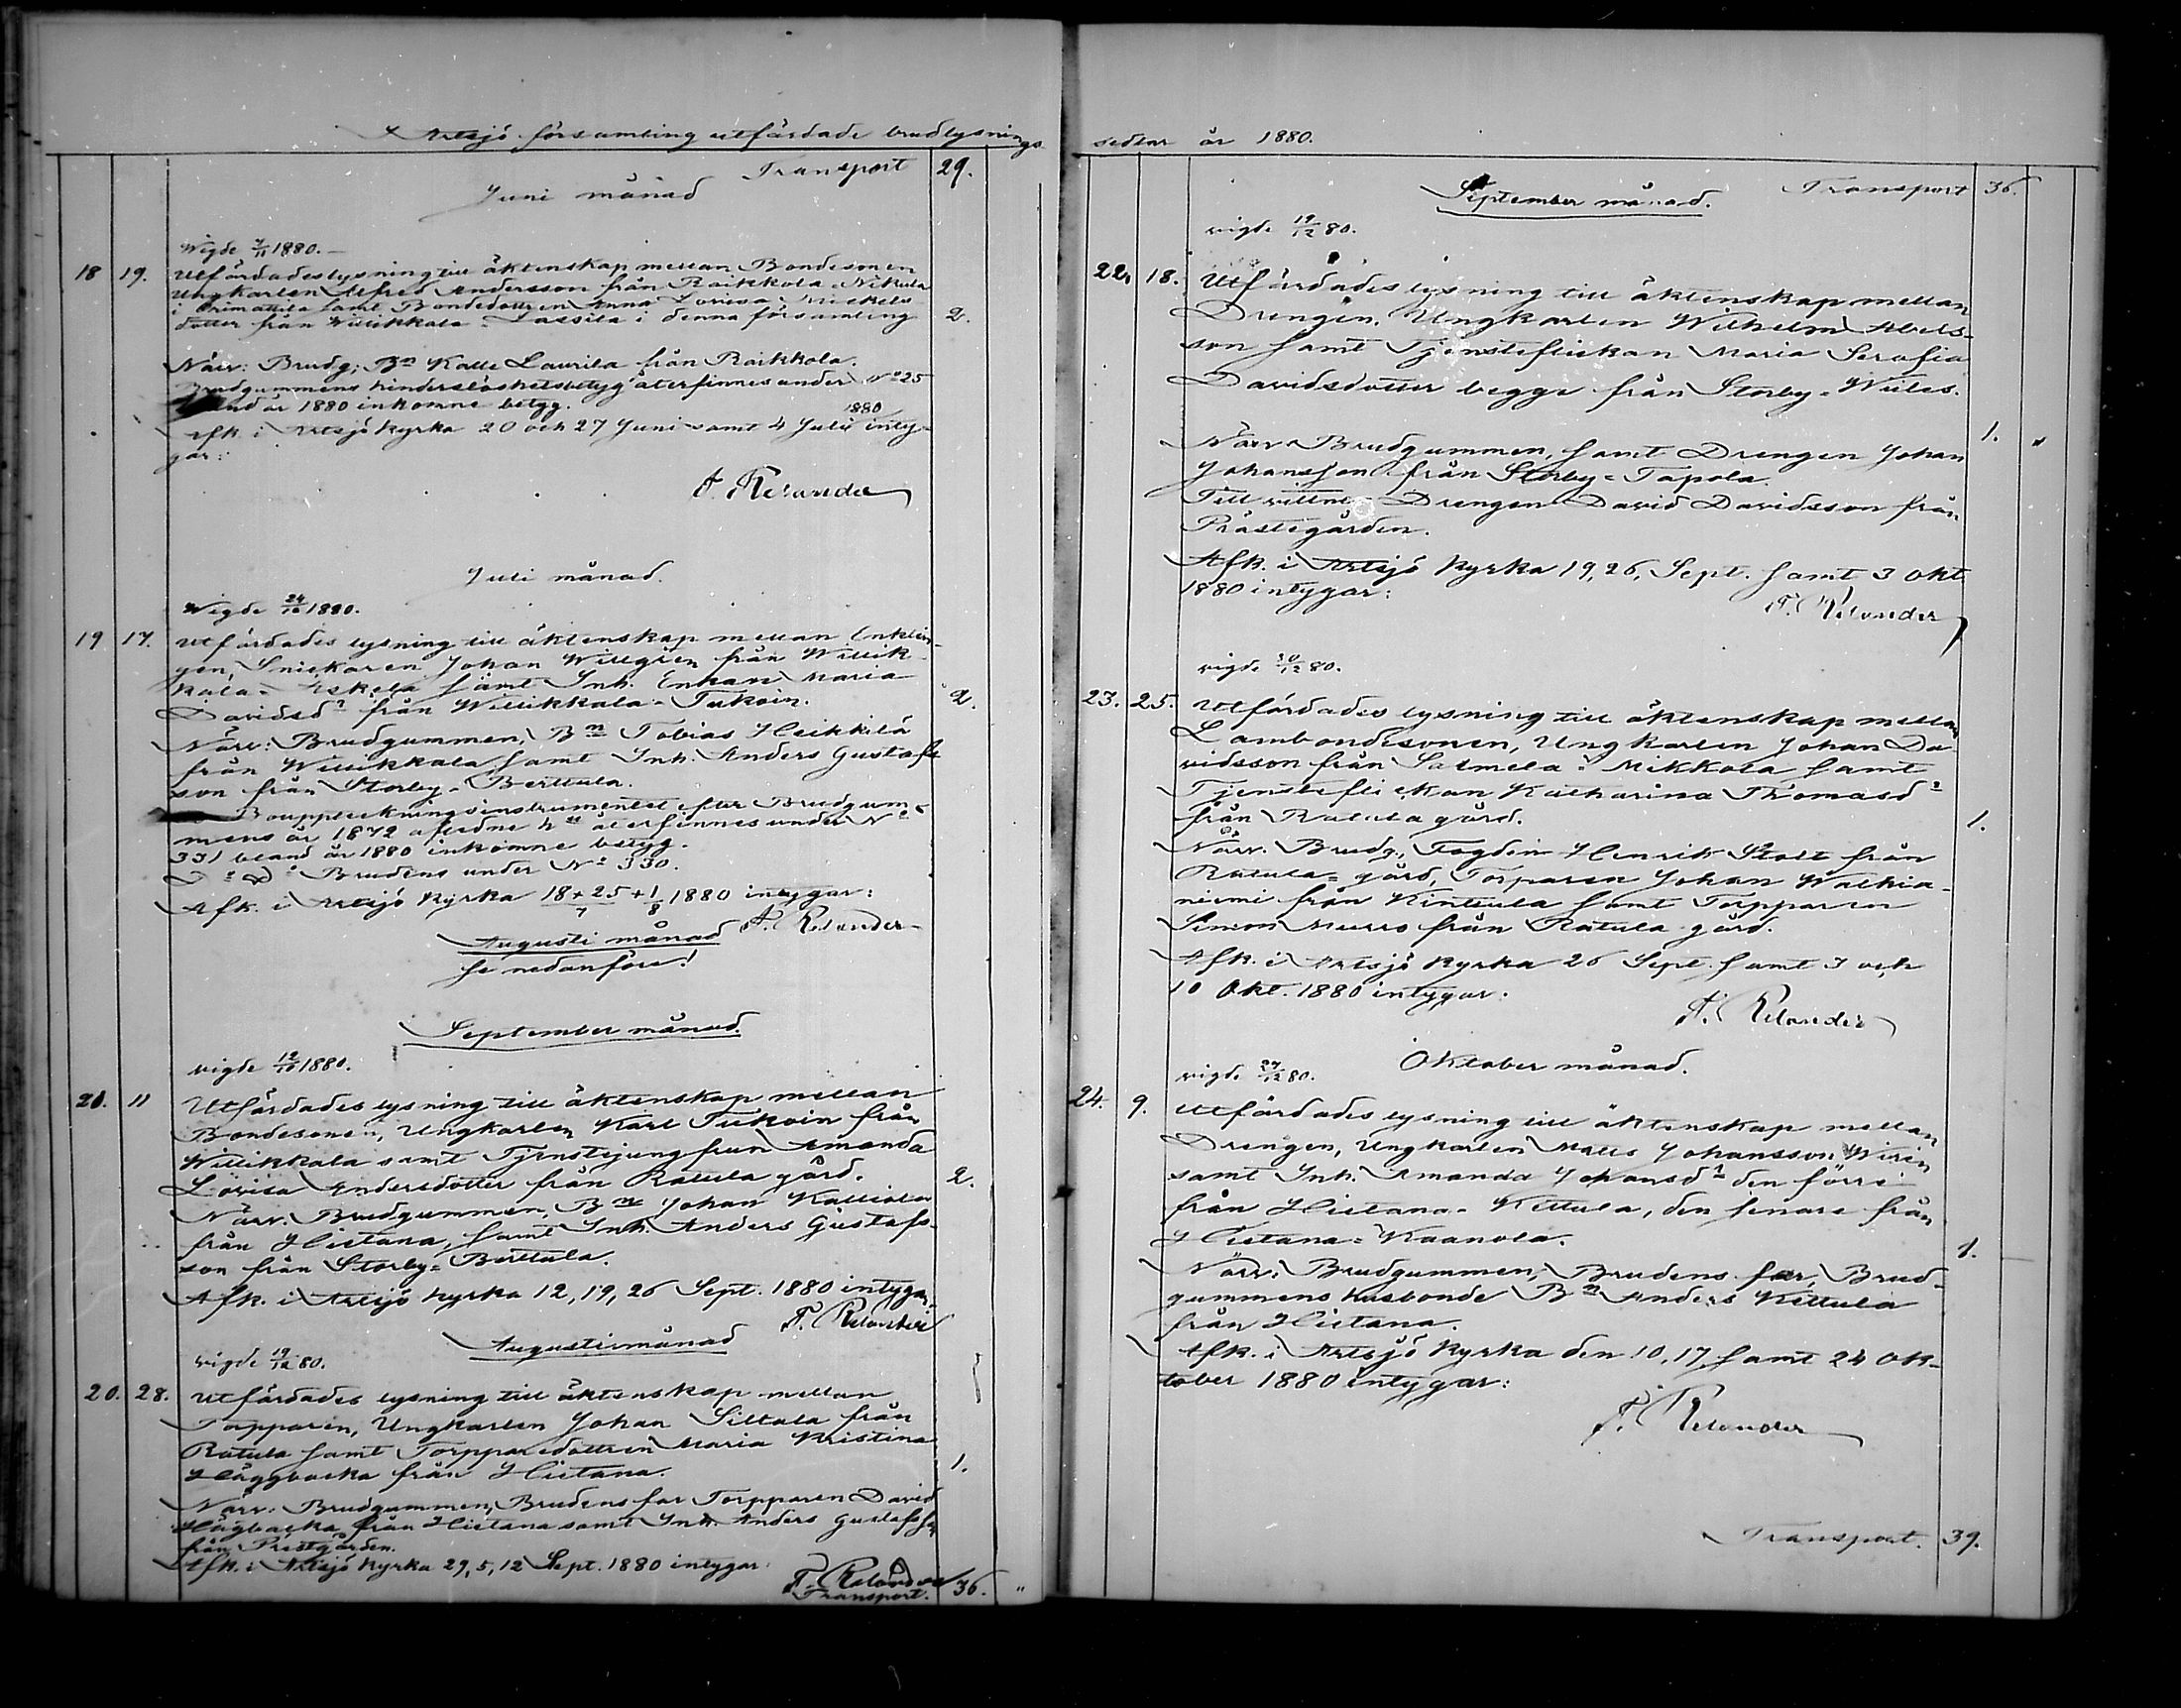 I Artsjö församling utfärdade brudlysnings
Transport 29.
Juni månad
Wigde 7/11 1880.
18 19. Utfärdades lysning till äktenskap mellan Bondesonen
Ungkarlen Alfred Andersson från Raikkola-Nikula
i Orimattila samt Bondedottren Anna Lovisa Mickels
dotter från Willikkala-Lassila i denna församling 2.
Närv: Brudg; Bn Kalle Laurila från Raikkola.
Brudgummens hinderslöshetsbetyg återfinnes under No 25
bland år 1880 inkomne betyg.
Afk. i Artsjö kyrka 20 och 27 Juni samt 4 Juli 1880 inty-
gar:
F. Relander
Juli månad.
Wigde 24/10 1880.
19 17. Utfärdades lysning till äktenskap mellan Enklin-
gen, Snickaren Johan Willgren från Willik-
kala-Eskola samt Inh. Enkan Maria
Davidsdr från Willikkala-Tukoin. 2.
Närv: Brudgummen, Bn Tobias Heikkilä
från Willikkala samt Inh. Anders Gustafs
son från Storby-Berttula.
Bouppteckningsinstrumentet efter Brudgum-
mens år 1872 aflidne hu återfinnes under No
331 bland år 1880 inkomne betyg.
Do Do Brudens under No 330.
Afk. i Artsjö Kyrka 18+25/7+1/8 1880 intygar:
F. Relander
Augusti månad
se nedanföre!
September månad.
vigde 12/10 1880.
21. 11 Utfärdades lysning till äktenskap mellan
Bondesonen, Ungkarlen Karl Tukoin från
Willikkala samt Tjenstejungfrun Amanda
Lovisa Andersdotter från Ratula gård. 2.
Närv. Brudgummen, Bn Johan Kalliola
från Hietana, samt Inh. Anders Gustafs-
son från Storby-Berttula.
Afk. i Artsjö kyrka 12, 19, 26 Sept. 1880 intygar
F. Relander
Augustimånad
vigde 19/12 80.
20. 28. Utfärdades lysning till äktenskap mellan
Torpparen, Ungkarlen Johan Siltala från
Ratula samt Torpparedottren Maria Kristina
Häggbacka från Hietana. 1.
Närv. Brudgummen, Brudens far Torpparen David
Hägbacka från Hietana samt Inh. Anders Gustafsson
från Prestgården.
Afk. i Artsjö kyrka 29, 5, 12 Sept. 1880 intygar
F. Relander
Transport. 36. "
sedlar år 1880.
September månad. Transport 36.
vigde 19/12 80.
22. 18. Utfärdades lysning till äktenskap mellan
Drengen, Ungkarlen Wilhelm Abels-
son samt Tjensteflickan Maria Serafia
Davidsdotter begge från Storby-Wiiles.
1. "
Närv Brudgummen, samt Drengen Johan
Johansson från Storby-Tapola.
Till vittne Drengen David Davidsson från
Prästegården.
Afk. i Artsjö kyrka 19, 26, Sept. samt 3 Okt.
1880 intygar:
F. Relander
vigde 30/12 80.
23. 25. Utfärdades lysning till äktenskap mellan
Lambondesonen, Ungkarlen Johan Da
vidsson från Salmela-Mikkola samt
Tjensteflickan Katharina Thomasdr
från Ratula gård. 1.
Närv. Brudg., Fogden Henrik Stolt från
Ratula-gård, Torparen Johan Walkia-
niemi från Kinttula samt Torpparen
Simon Murro från Ratula gård.
Afk. i Artsjö kyrka 26 Sept. samt 3 och
10 Okt. 1880 intygar:
F. Relander
Oktober månad.
vigde 27/12 80.
24. 9. Utfärdades lysning till äktenskap mellan
Drengen, Ungkarlen Matts Johansson Wirén
samt Inh. Amanda Johansdr den förre
från Hietana-Kettula, den senare från
Hietana-Kaanola. 1.
Närv. Brudgummen, Brudens far, Brud-
gummens Husbonde Bn Anders Kettula
från Hietana.
Afk. i Artsjö kyrka den 10, 17, samt 24 Ok-
tober 1880 intygar:
F. Relander
Transport. 39.